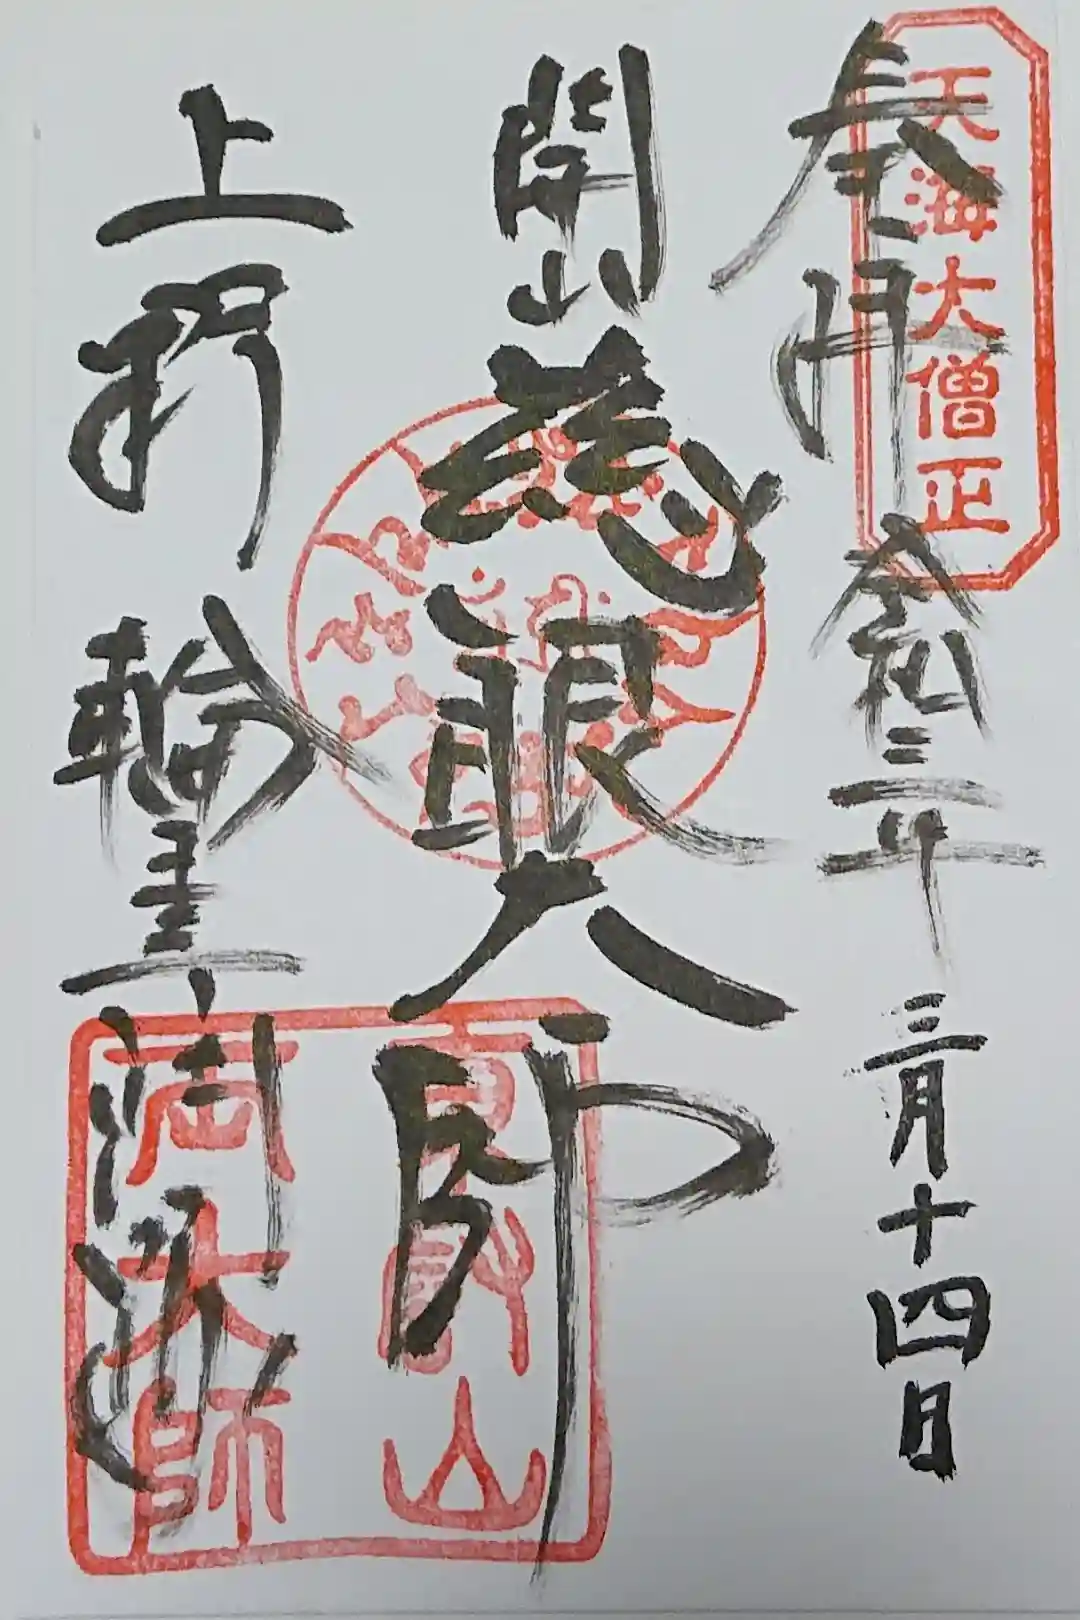 奉拝 令和三年 三月十四日
天海大僧正
開山 慈眼大師
上野 輪王寺 両大師
東叡山
両大師